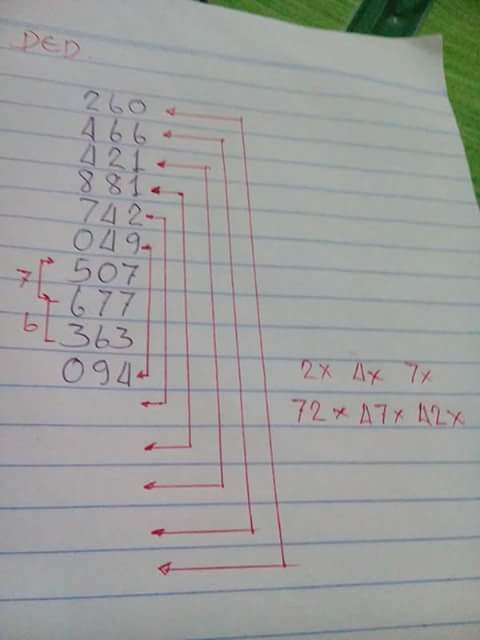 DED.
260
466
421
881
742
049
507
7
677
6
363
094
2x 4x 7x
72x 47x 42x